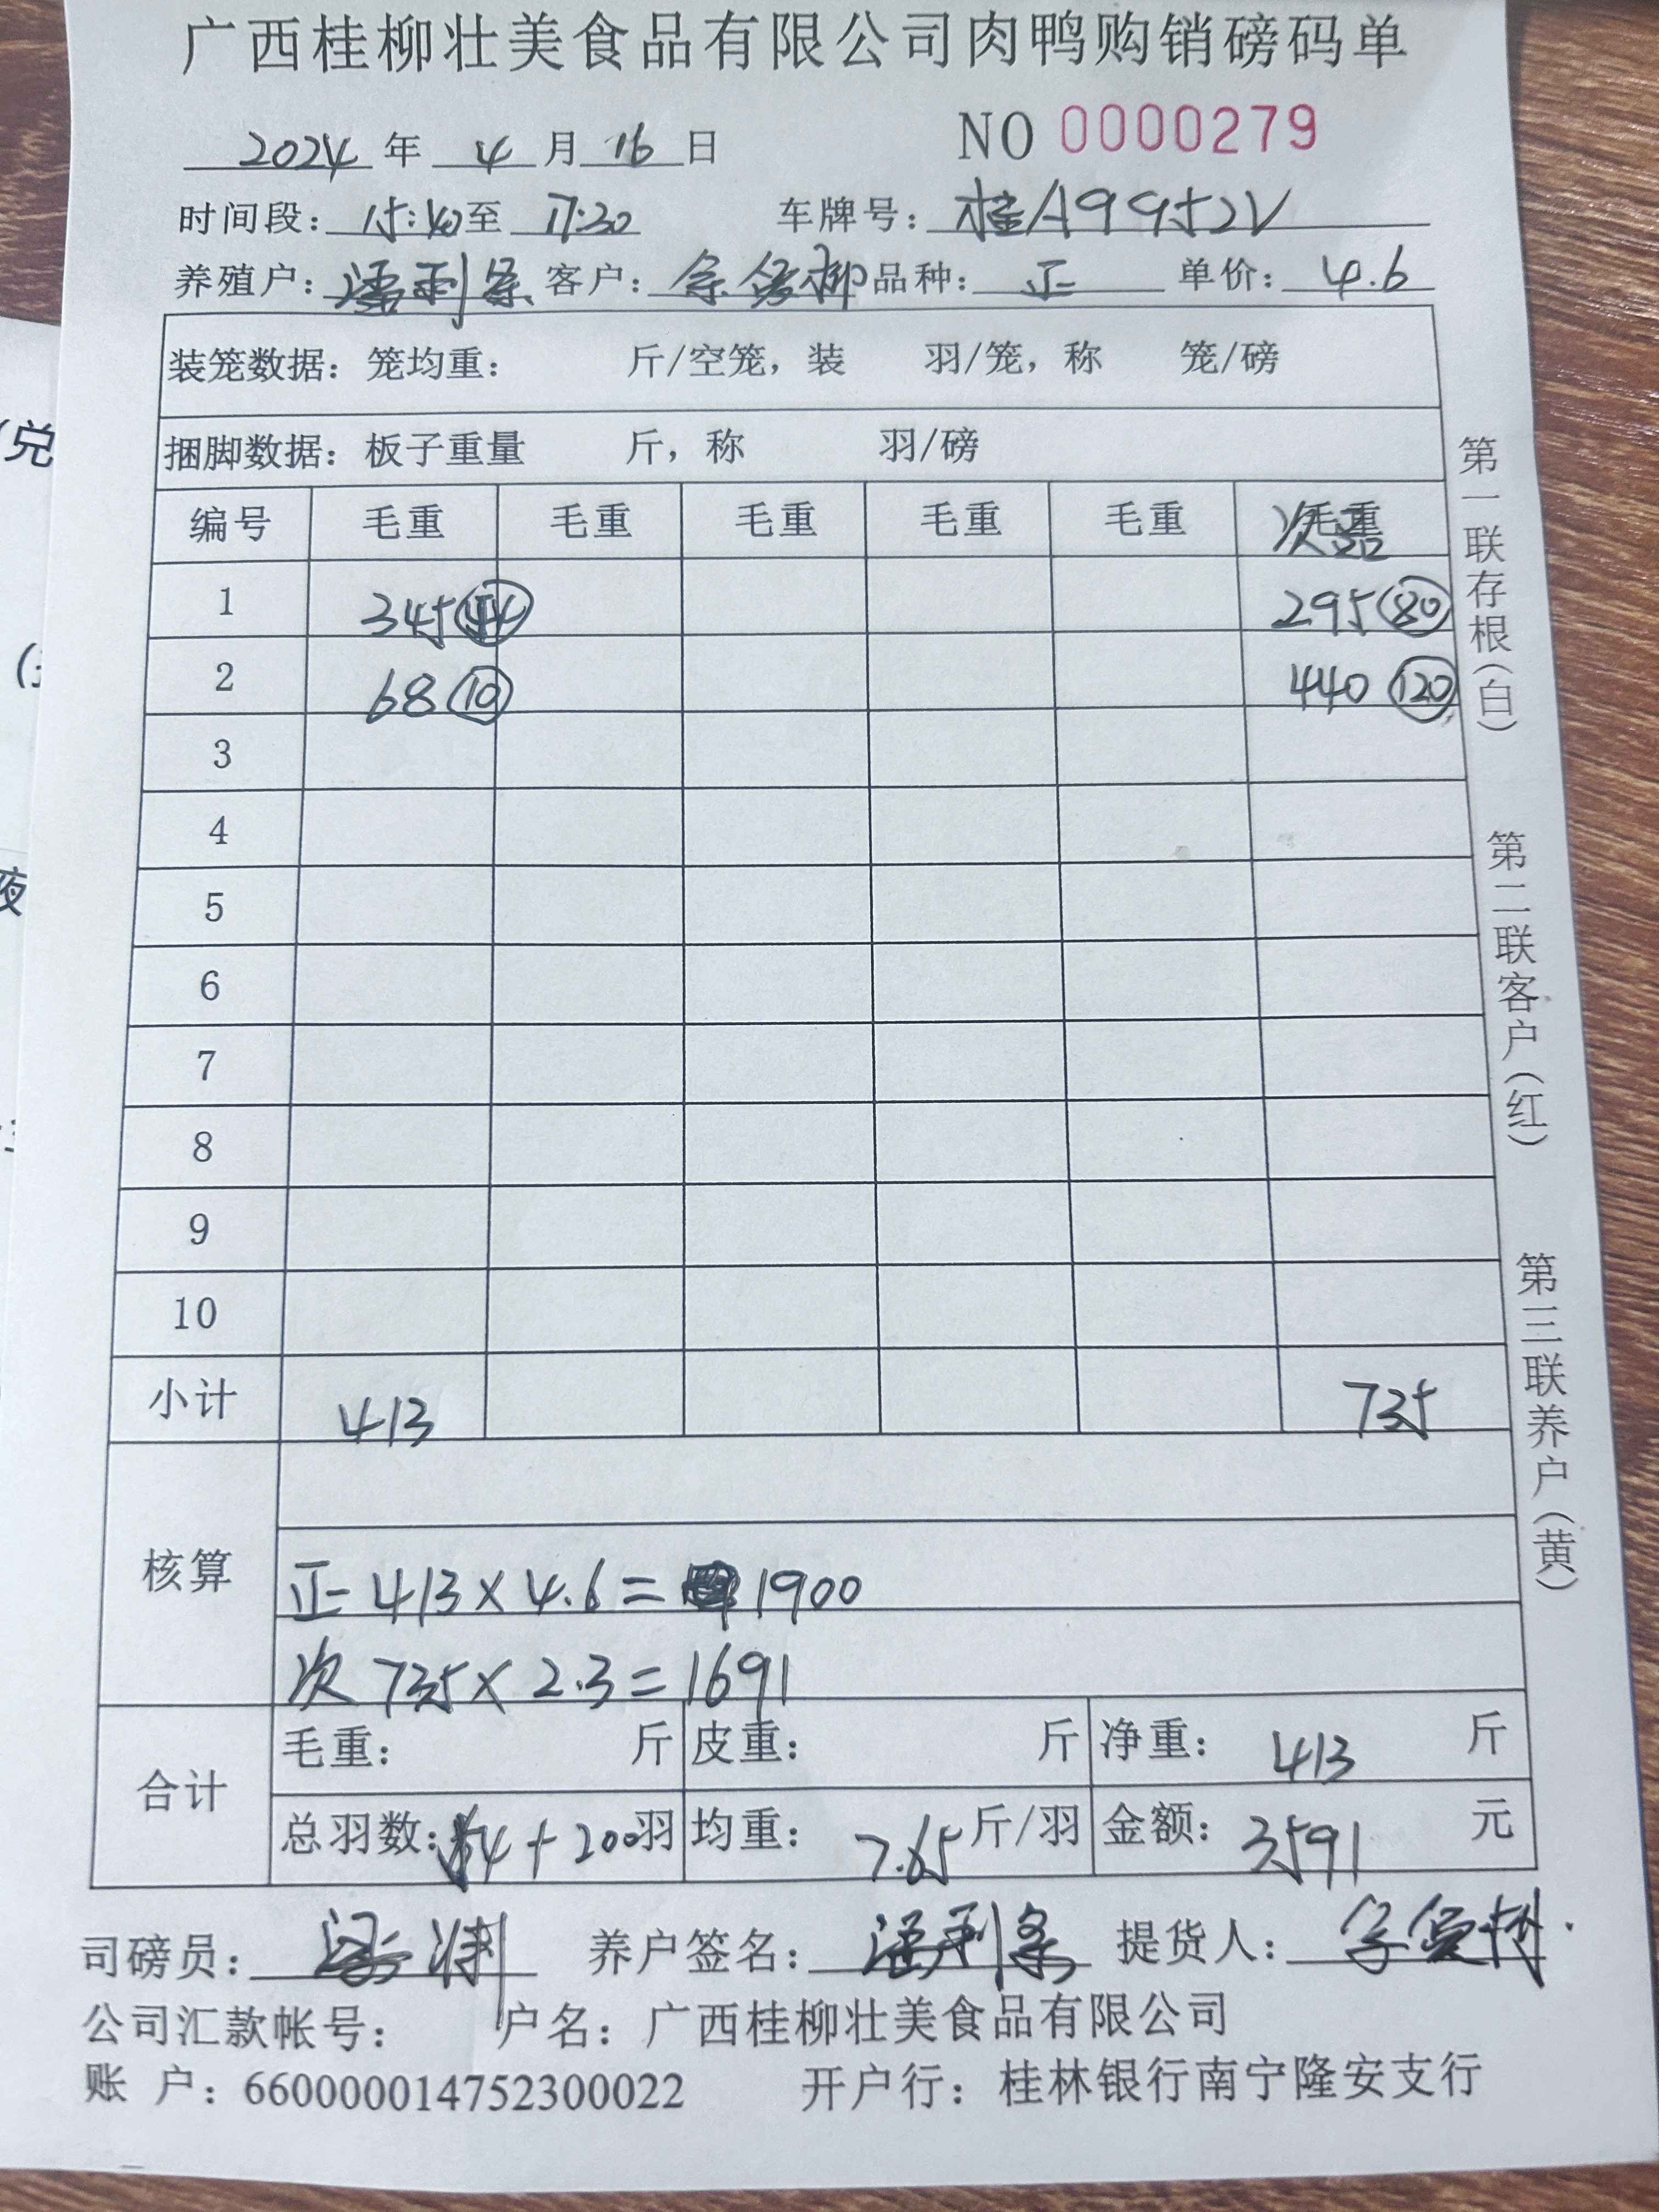 广西桂柳壮美食品有限公司肉鸭购销磅码单
2024 年 4 月 16 日 NO 0000279
时间段: 15:40 至 17:30 车牌号: 桂A9952V
养殖户: 潘利 客户: 品种: 正 单价: 4.6
装笼数据: 笼均重: 斤/空笼, 装 羽/笼, 称 笼/磅
捆脚数据: 板子重量 斤, 称 羽/磅
编号 毛重 毛重 毛重 毛重 毛重 次品
1 345 295 80
2 68 10 440 120
3
4
5
6
7
8
9
10
小计 413 735
核算
正 413×4.6= 1900
次 735×2.3=1691
合计
毛重: 斤 皮重: 斤 净重: 413 斤
总羽数: 54+200 羽 均重: 7.65 斤/羽 金额: 3591 元
司磅员: 养户签名: 潘利 提货人:
公司汇款帐号: 户名: 广西桂柳壮美食品有限公司
账 户: 660000014752300022 开户行: 桂林银行南宁隆安支行
第一联存根(白)
第二联客户(红)
第三联养户(黄)
(兑
夜